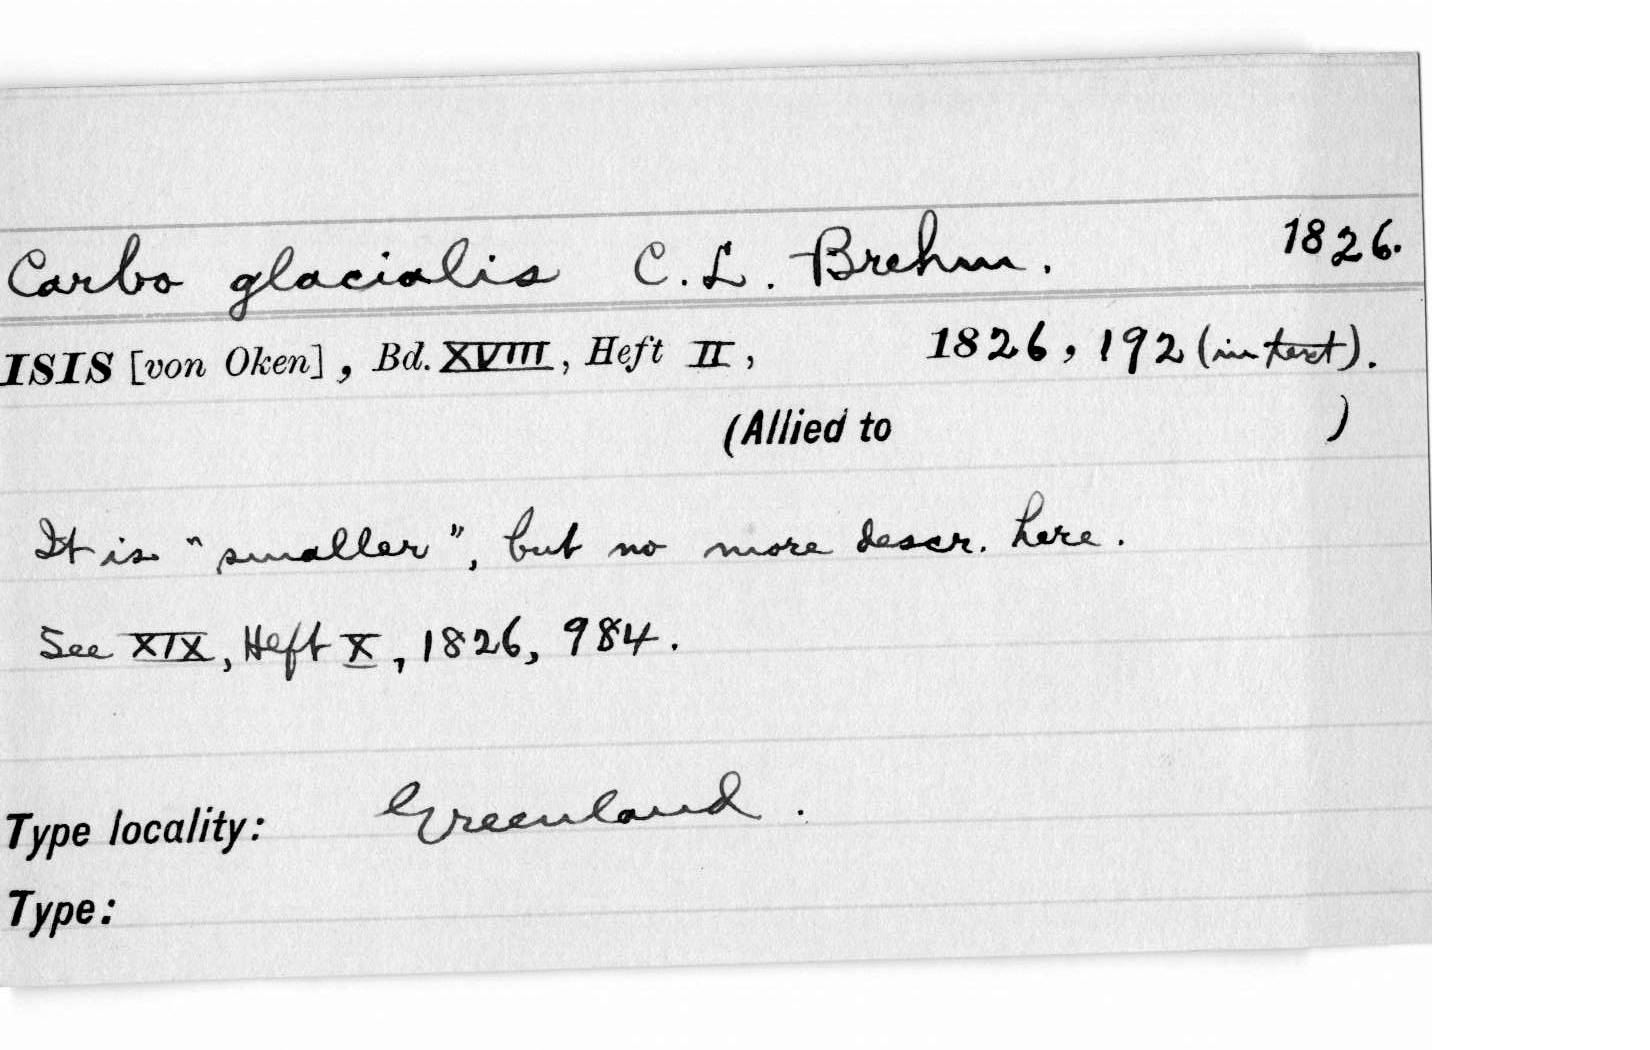 Carbo glacialis C. L. Brehm. 1826.
ISIS [von Oken], Bd. XVIII, Heft II, 1826, 192 (in text).
(Allied to )
It is "smaller", but no more descr. here.
See XIX, Heft X, 1826, 984.
Type locality: Greenland.
Type: